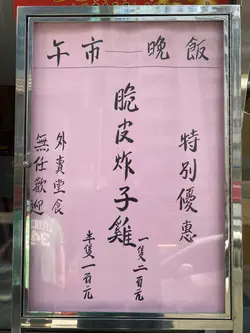 午市——晚飯
特別優惠
脆皮炸子雞
一隻二百元
半隻一百元
外賣堂食
無任歡迎